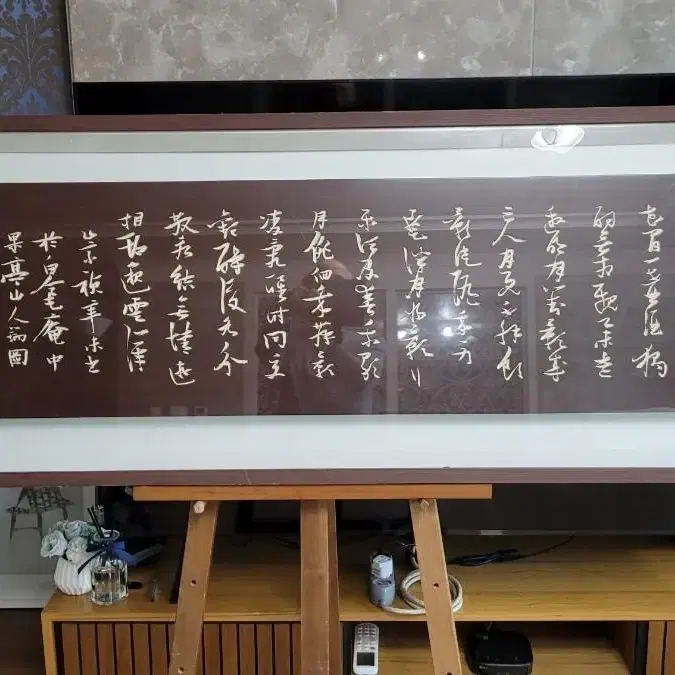 花間一壺酒獨
酌無相親舉杯
邀明月對影成
三人月既不解飲
影徒隨我身
暫伴月將影行
樂須及春我歌
月徘徊我舞影
零亂醒時同交
歡醉後各分
散永結無情遊
相期邈雲漢
崇禎辛未書
於白毫庵中
果亭山人瑞圖